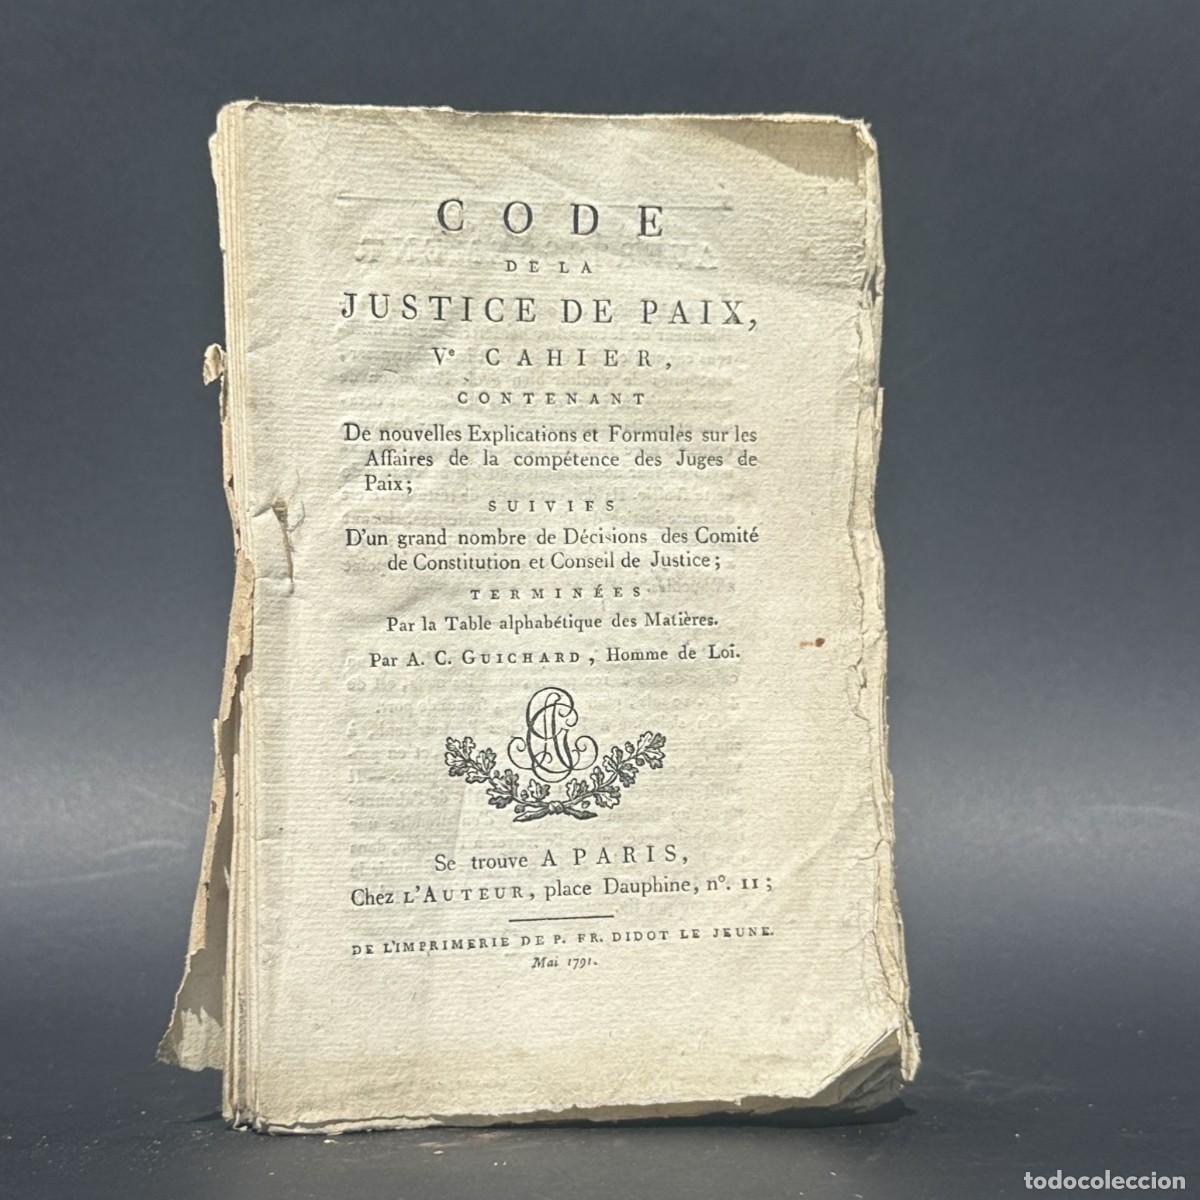 CODE
DE LA
JUSTICE DE PAIX,
Ve CAHIER,
CONTENANT
De nouvelles Explications et Formules sur les
Affaires de la compétence des Juges de
Paix;
SUIVIES
D'un grand nombre de Décisions des Comité
de Constitution et Conseil de Justice;
TERMINÉES
Par la Table alphabétique des Matières.
Par A. C. GUICHARD, Homme de Loi.
Se trouve A PARIS,
Chez L'AUTEUR, place Dauphine, n°. 11;
DE L'IMPRIMERIE DE P. FR. DIDOT LE JEUNE.
Mai 1791.
todocoleccion